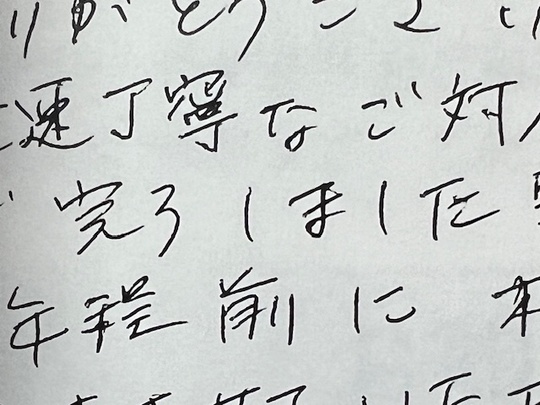 りがとうござ
速丁寧なご対
完了しました
年程前に 本